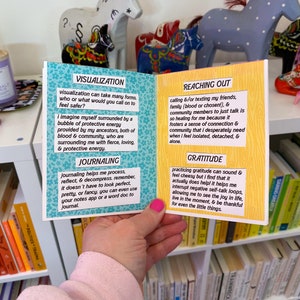 VISUALIZATION
visualization can take many forms.
who or what would you call on to
feel safe?
I imagine myself surrounded by a
bubble of protective energy
provided by my ancestors, both of
blood & community, who are
surrounding me with fierce, loving,
& protective energy.
JOURNALING
journaling helps me process,
reflect, & decompress. remember,
it doesn't have to look perfect,
pretty, or fancy. you can even use
your notes app or a word doc to
journal.
REACHING OUT
calling &/or texting my friends,
family (blood or chosen), &
community members to just talk is
so healing for me because it
fosters a sense of connection &
community that I desperately need
when I feel isolated, detached, &
alone.
GRATITUDE
practicing gratitude can sound &
feel cheesy but I find that it
actually does help! it helps me
interrupt negative self-talk loops,
allowing me to see the joy in life,
live in the moment, & be thankful
for even the little things.